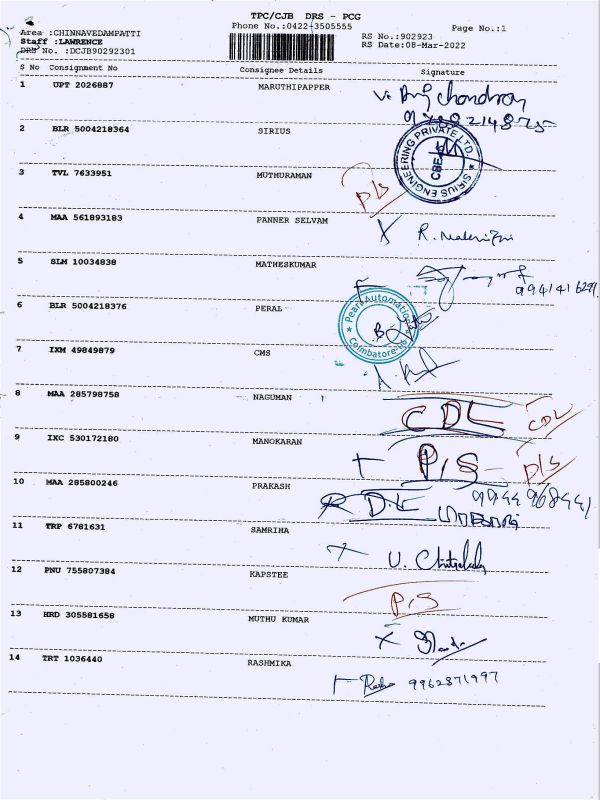 TPC/CJB DRS - PCG
Phone No.:0422-3505555
Page No.:1
Area :CHINNAVEDAMPATTI
Staff :LAWRENCE
DRS No. :DCJB90292301
RS No.:902923
RS Date:08-Mar-2022
S No Consignment No Consignee Details Signature
1 UPT 2026887 MARUTHIPAPPER
2 BLR 5004218364 SIRIUS
SIRIUS ENGINEERING PRIVATE LTD.
CBE
3 TVL 7633951 MUTHURAMAN P/S
4 MAA 561893183 PANNER SELVAM
5 SLM 10034838 MATHESKUMAR
6 BLR 5004218376 PERAL
Pearl Automation
Coimbatore
7 IXM 49849879 CMS
8 MAA 285798758 NAGUMAN CDL CDL
9 IXC 530172180 MANOKARAN P/S P/S
10 MAA 285800246 PRAKASH
11 TRP 6781631 SAMRIHA
12 PNU 755807384 KAPSTEE P/S
13 HRD 305581658 MUTHU KUMAR
14 TRT 1036440 RASHMIKA 9962871997